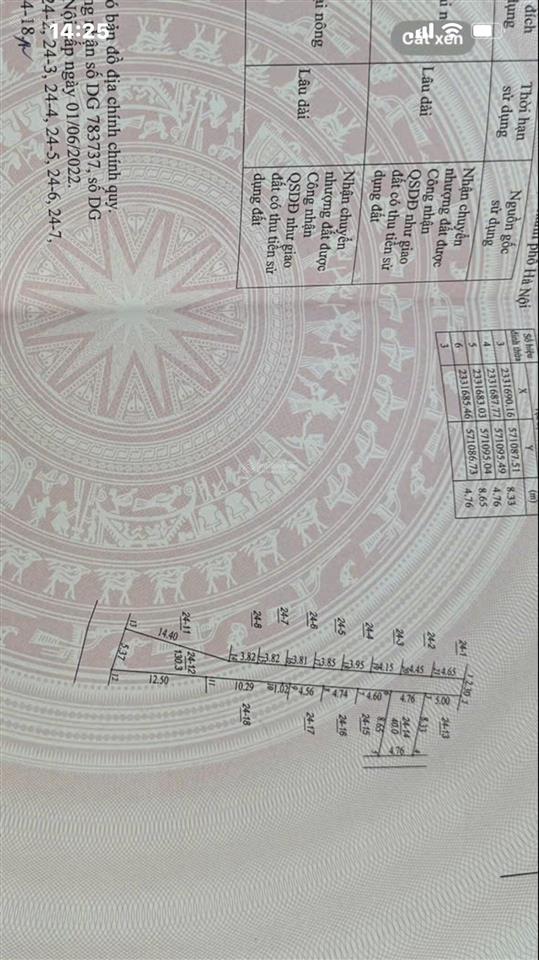 14:25
Cắt xén
đích
dụng
Thời hạn
sử dụng
Nguồn gốc
sử dụng
Lâu dài
Nhận chuyển
nhượng đất được
Công nhận
QSDĐ như giao
đất có thu tiền sử
dụng đất
nông
Lâu dài
Nhận chuyển
nhượng đất được
Công nhận
QSDĐ như giao
đất có thu tiền sử
dụng đất
phố Hà Nội
bản đồ địa chính chính quy.
số DG 783737, số DG
Nội cấp ngày 01/06/2022.
24-3, 24-4, 24-5, 24-6, 24-7,
Số hiệu đỉnh thửa X Y (m)
3 2331690.16 571087.51 8.33
4 2331687.77 571095.49 4.76
5 2331683.03 571095.04 8.65
6 2331685.46 571086.73 4.76
3
24-1
24-2
24-3
24-4
24-5
24-6
24-7
24-8
24-11
24-12
130.3
24-13
24-14
40.0
24-15
24-16
24-17
24-18
2.30
4.65
4.45
4.15
3.95
3.85
3.81
3.82
3.82
14.40
5.37
12.50
10.29
1.02
4.56
4.74
4.60
4.76
5.00
8.33
4.76
8.65
13
12
11